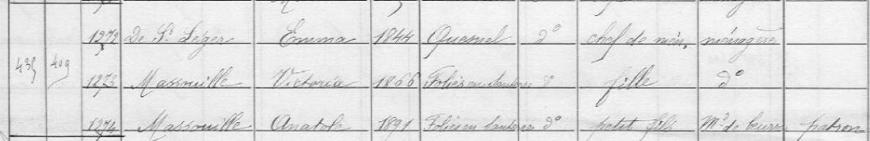 1272 De St Léger Emma 1844 Quesnel do chef de mén. ménagère
435 409 1273 Massouille Victoria 1866 Folies en Santerre do fille do
1274 Massouille Anatole 1891 Folies en Santerre do petit fils Md de beurre patron